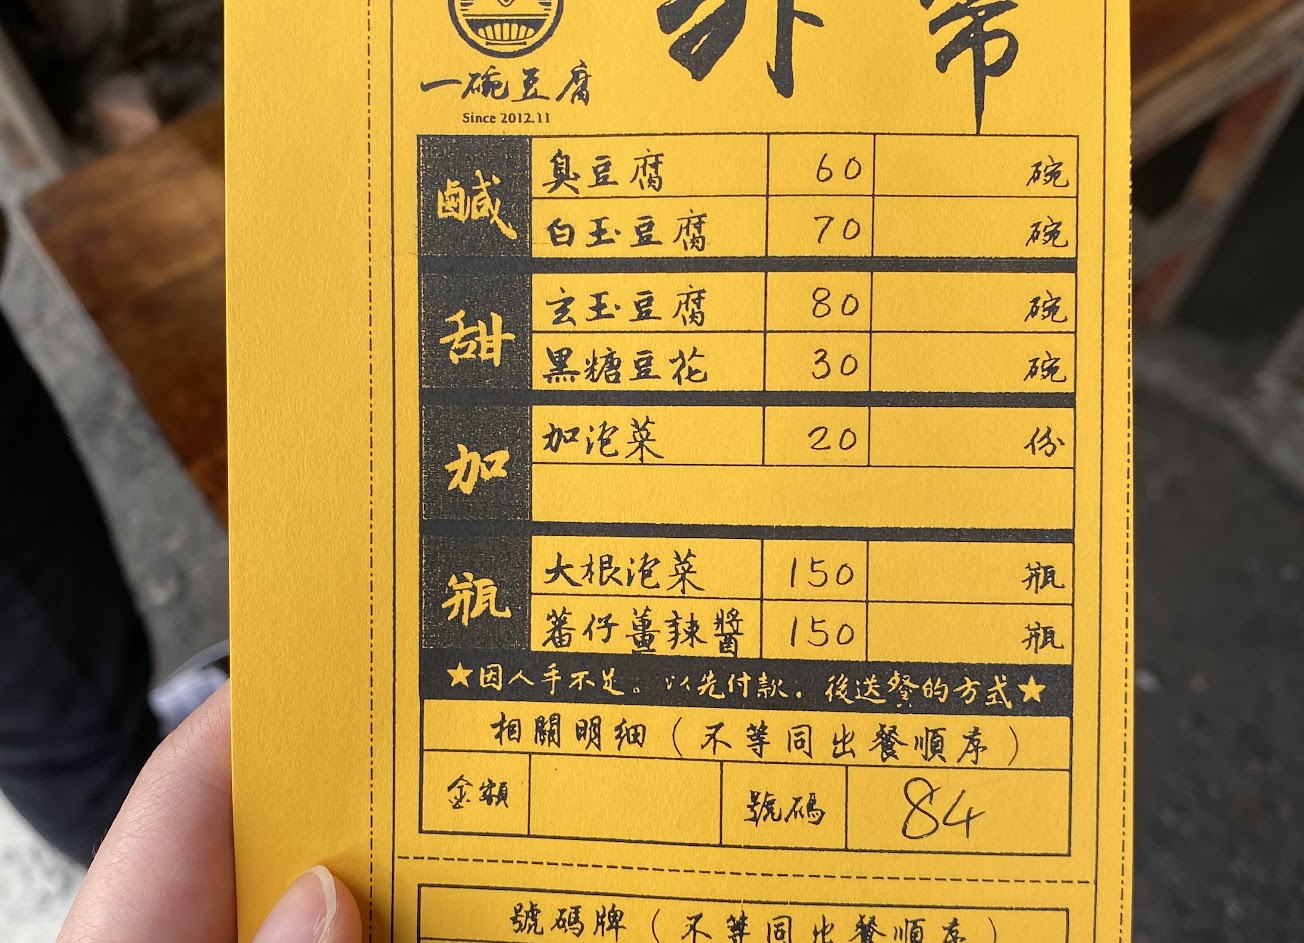 非常
一碗豆腐
Since 2012.11
鹹
臭豆腐 60 碗
白玉豆腐 70 碗
甜
玄玉豆腐 80 碗
黑糖豆花 30 碗
加
加泡菜 20 份
瓶
大根泡菜 150 瓶
蕃仔薑辣醬 150 瓶
★因人手不足。以先付款．後送餐的方式★
相關明細（不等同出餐順序）
金額 號碼 84
號碼牌（不等同出餐順序）